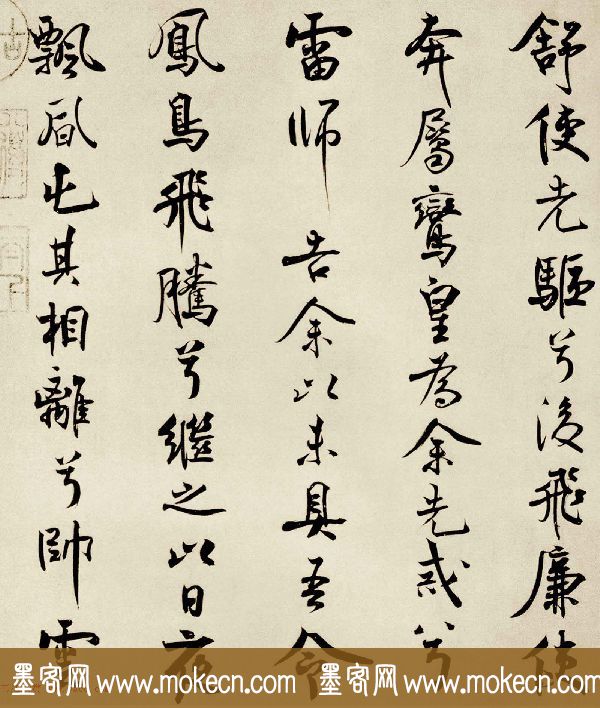 舒使先驅兮後飛廉使
奔屬鸞皇為余先戒兮
雷師告余以未具吾令
鳳鳥飛騰兮繼之以日夜
飄風屯其相離兮帥雲
墨客网 www.mokecn.com 墨客网 www.mokecn.com